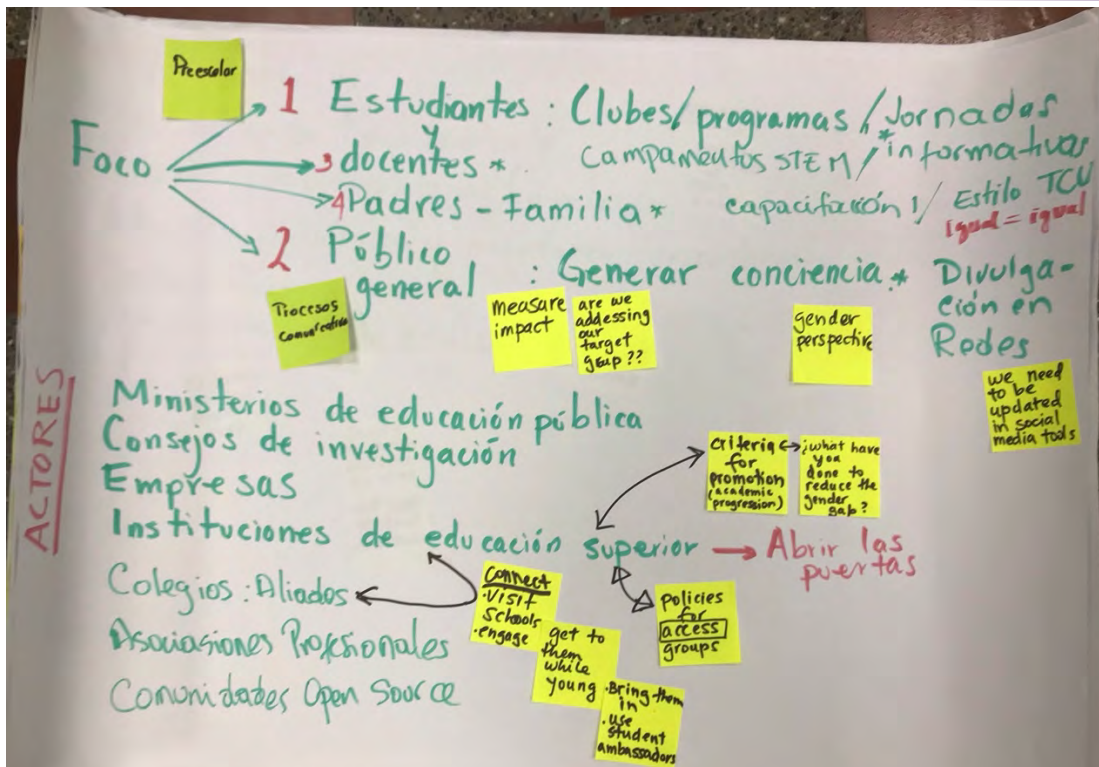 Preescolar
Foco
1 Estudiantes : Clubes/programas/Jornadas
y
3 docentes * Campamentos STEM/* informativas
4 Padres - Familia * capacitación !/ Estilo TCU
igual = igual
2 Público
general : Generar conciencia * Divulga-
ción en
Redes
Procesos
comunicativos
measure
impact
are we
addressing
our
target
group ??
gender
perspective
we need
to be
updated
in social
media tools
ACTORES
Ministerios de educación pública
Consejos de investigación
Empresas
Instituciones de educación superior → Abrir las
puertas
Colegios : Aliados
Asociasiones Profesionales
Comunidades Open Source
criteria
for
promotion
(academic
progression)
¿what have
you
done to
reduce the
gender
gap?
connect
·visit
schools
·engage
get to
them
while
young
·Bring them
in
·use
student
ambassadors
policies
for
access
groups